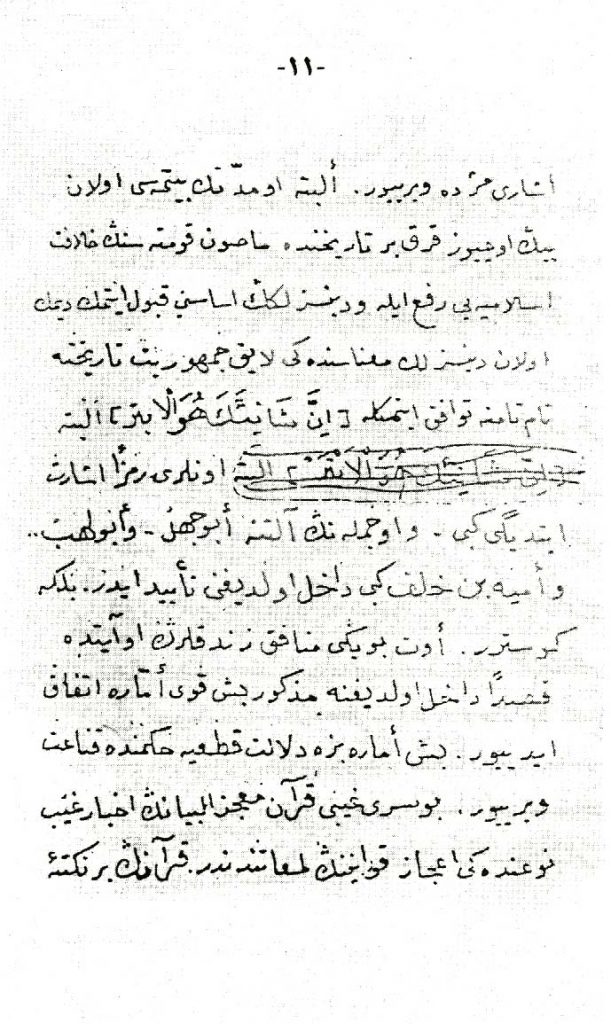 -١١-
أشارى مژده ويرييور. ألبته او مدّتك بيتمسى اولان
بيڭ اوچيوز قرق بر تاريخنده ماصون قومته سنڭ خلافت
اسلاميه يى رفع ايله ودينسزلكڭ اساسنى قبول ايتمك ديمك
اولان دينسزلك معناسنده كى لايق جمهوريت تاريخنه
تام تامنه توافق ايتمكله [إِنَّ شَانِئَكَ هُوَ الْأَبْتَرُ] البته
اونلرى رمزاً اشارت
ايتديگى كبى - و او جمله نڭ آلتنه أبوجهل - وأبولهب..
وأميه بن خلف كبى داخل اولديغنى تأييد ايدر. بلكه
كوسترر. أوت بو يكى منافق زنديقلرڭ او آيتده
قصداً داخل اولديغنه مذكور بش قوى أمّاره اتفاق
ايدييور. بش أماره بزه دلالت قطعيه حكمنده قناعت
ويرييور. بو سرى غيبى قُرآن معجز البيانڭ اخبار غيب
نوعنده كى اعجاز قرآنينڭ لمعاتندندر. قرآنڭ بر نكتۀ